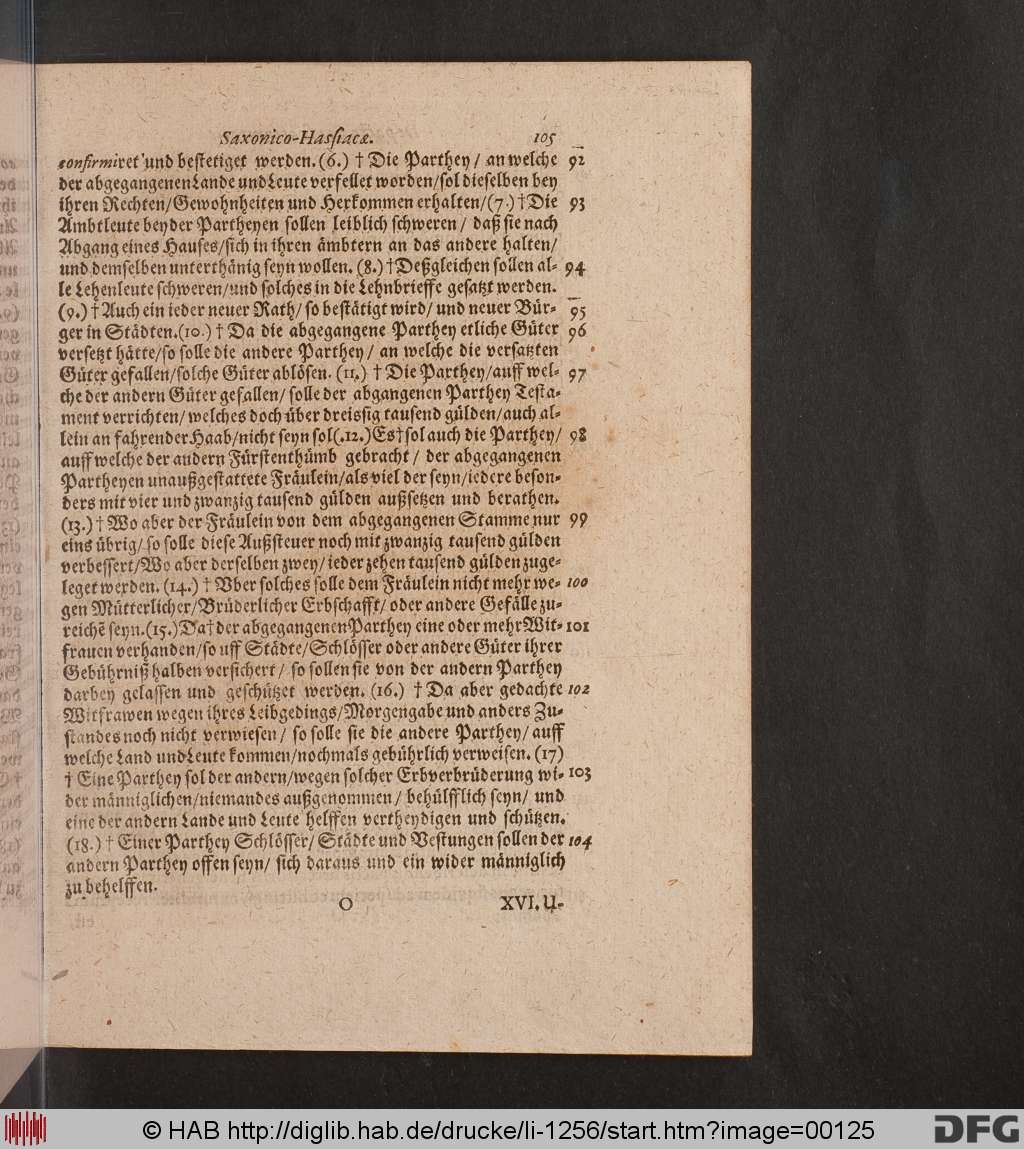 Saxonico-Hassiacæ. 105
confirmiret und bestetiget werden. (6.) † Die Parthey / an welche 92
der abgegangenen Lande und Leute verfellet worden/sol dieselben bey
ihren Rechten/Gewohnheiten und Herkommen erhalten/(7.) † Die 93
Ambtleute beyder Partheyen sollen leiblich schweren / daß sie nach
Abgang eines Hauses/sich in ihren ämbtern an das andere halten/
und demselben unterthänig seyn wollen. (8.) † Deßgleichen sollen al- 94
le Lehenleute schweren/und solches in die Lehnbrieffe gesatzt werden.
(9.) † Auch ein ieder neuer Rath/ so bestätigt wird/ und neuer Bür- 95
ger in Städten.(10.) † Da die abgegangene Parthey etliche Güter 96
versetzt hätte/so solle die andere Parthey/ an welche die versatzten
Güter gefallen/solche Güter ablösen. (11.) † Die Parthey/auff wel- 97
che der andern Güter gefallen/ solle der abgangenen Parthey Testa-
ment verrichten/ welches doch über dreissig tausend gülden/auch al-
lein an fahrender Haab/nicht seyn sol(.12.)Es † sol auch die Parthey/ 98
auff welche der andern Fürstenthümb gebracht / der abgegangenen
Partheyen unaußgestattete Fräulein/als viel der seyn/iedere beson-
ders mit vier und zwanzig tausend gülden außsetzen und berathen.
(13.) † Wo aber der Fräulein von dem abgegangenen Stamme nur 99
eins übrig/ so solle diese Außsteuer noch mit zwanzig tausend gülden
verbessert/Wo aber derselben zwey/ ieder zehen tausend gülden zuge-
leget werden. (14.) † Vber solches solle dem Fräulein nicht mehr we- 100
gen Mütterlicher/Brüderlicher Erbschafft/ oder andere Gefälle zu-
reichẽ seyn.(15.)Da † der abgegangenen Parthey eine oder mehr Wit- 101
frauen verhanden/so uff Städte/Schlösser oder andere Güter ihrer
Gebührniß halben versichert / so sollen sie von der andern Parthey
darbey gelassen und geschützet werden. (16.) † Da aber gedachte 102
Witfrawen wegen ihres Leibgedings/Morgengabe und anders Zu-
standes noch nicht verwiesen / so solle sie die andere Parthey/ auff
welche Land und Leute kommen/nochmals gebührlich verweisen. (17)
† Eine Parthey sol der andern/wegen solcher Erbverbrüderung wi- 103
der männiglichen/niemandes außgenommen / behülfflich seyn/ und
eine der andern Lande und Leute helffen vertheydigen und schützen.
(18.) † Einer Parthey Schlösser/ Städte und Vestungen sollen der 104
andern Parthey offen seyn/ sich daraus und ein wider männiglich
zu behelffen.
O XVI. U-
© HAB http://diglib.hab.de/drucke/li-1256/start.htm?image=00125
DFG